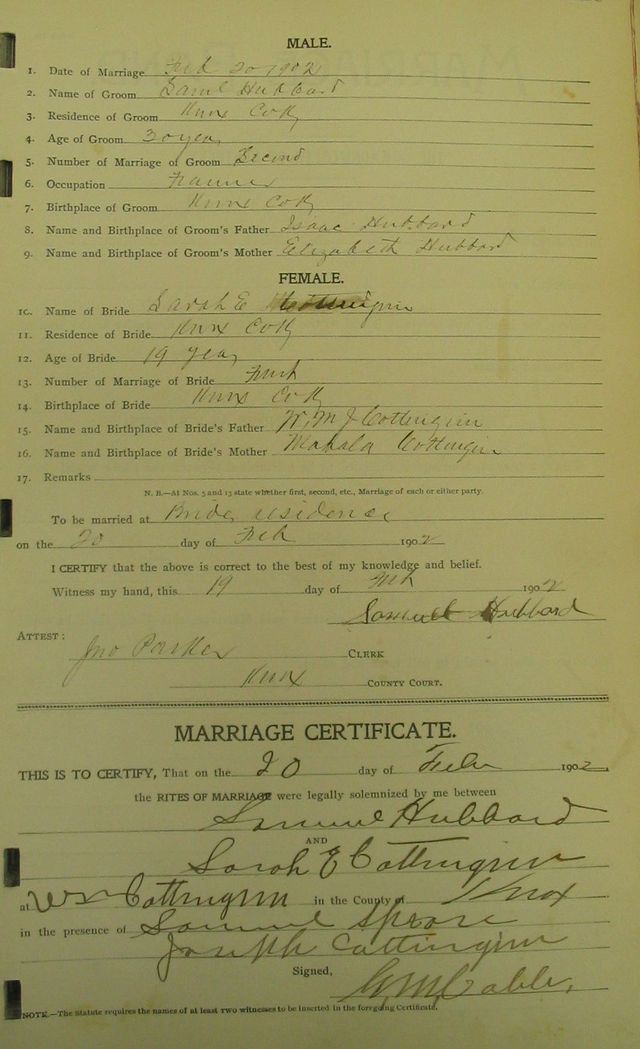 MALE.
1. Date of Marriage Feb 20 1902
2. Name of Groom Saml Hubbard
3. Residence of Groom Knox Co Ky
4. Age of Groom 30 year
5. Number of Marriage of Groom Second
6. Occupation Farmer
7. Birthplace of Groom Knox Co Ky
8. Name and Birthplace of Groom's Father Isaac Hubbard
9. Name and Birthplace of Groom's Mother Elizabeth Hubbard
FEMALE.
10. Name of Bride Sarah E Cottengim
11. Residence of Bride Knox Co Ky
12. Age of Bride 19 year
13. Number of Marriage of Bride First
14. Birthplace of Bride Knox Co Ky
15. Name and Birthplace of Bride's Father W. M J Cottengim
16. Name and Birthplace of Bride's Mother Mahala Cottengim
17. Remarks
N. B.—At Nos. 5 and 13 state whether first, second, etc., Marriage of each or either party.
To be married at Bride residence
on the 20 day of Feb 1902
I CERTIFY that the above is correct to the best of my knowledge and belief.
Witness my hand, this 19 day of Feb 1902
Samuel Hubbard
ATTEST:
Jno Parker CLERK
Knox COUNTY COURT.
MARRIAGE CERTIFICATE.
THIS IS TO CERTIFY, That on the 20 day of Feb 1902
the RITES OF MARRIAGE were legally solemnized by me between
Samuel Hubbard
AND
Sarah E Cottengim
at Wm Cottengim in the County of Knox
in the presence of Samuel
Joseph Cottengim
Signed,
Cable,
NOTE.—The Statute requires the names of at least two witnesses to be inserted in the foregoing Certificate.